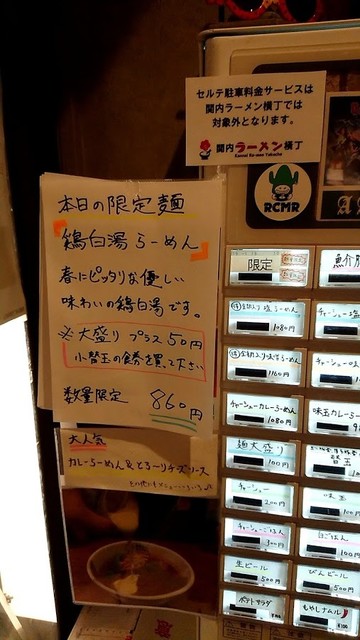 セルテ駐車料金サービスは
関内ラーメン横丁では
対象外となります。
関内ラーメン横丁
Kannai Ra-men Yokocho
RCMR
本日の限定麺
鶏白湯らーめん
春にピッタリな優しい
味わいの鶏白湯です。
※大盛り プラス50円
小替玉の食券を買って下さい
数量限定 860円
大人気
カレーらーめん&とろ〜りチーズソース
限定
1080円
1160円
チャーシューカレーらーめん
1080円
麺大盛り
100円
チャーシュー
200円
チャーシューごはん
300円
生ビール
500円
ポテトサラダ
味玉
100円
びんビール
500円
もやしナムル